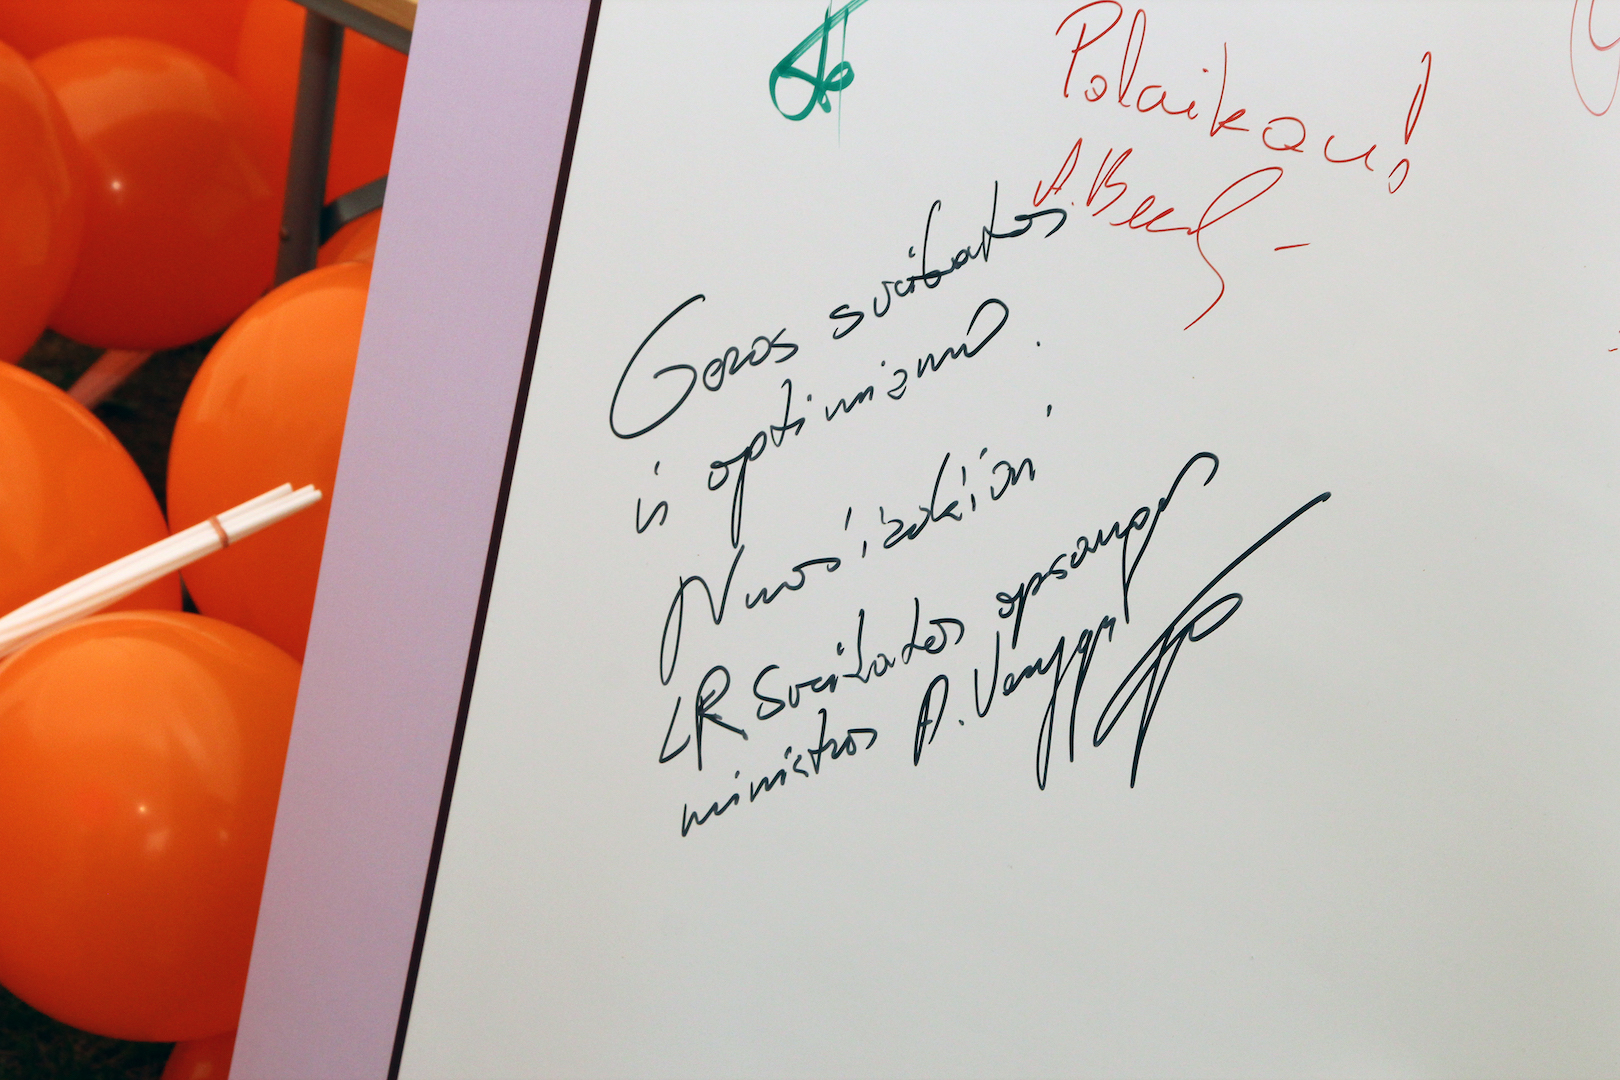 Palaikau!
A. Ve
Geros sveikatos
ir optimizmo.
Nuoširdžiai
LR Sveikatos apsaugos
ministras A. Veryga